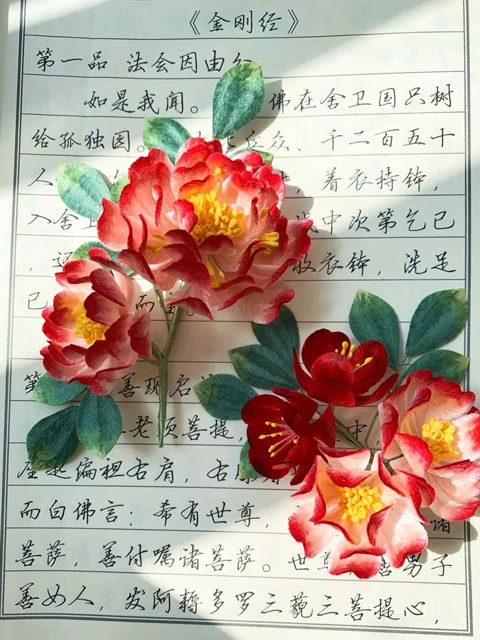 《金刚经》
第一品 法会因由分
如是我闻。佛在舍卫国只树
给孤独园。丘众、千二百五十
人，着衣持钵，
入舍中次第乞已
，还收衣钵，洗足
已而
第善现启
老须菩提，中
座起偏袒右肩，右
而白佛言：希有世尊，诸
菩萨，善付嘱诸菩萨。世尊，善男子
善女人，发阿耨多罗三藐三菩提心，